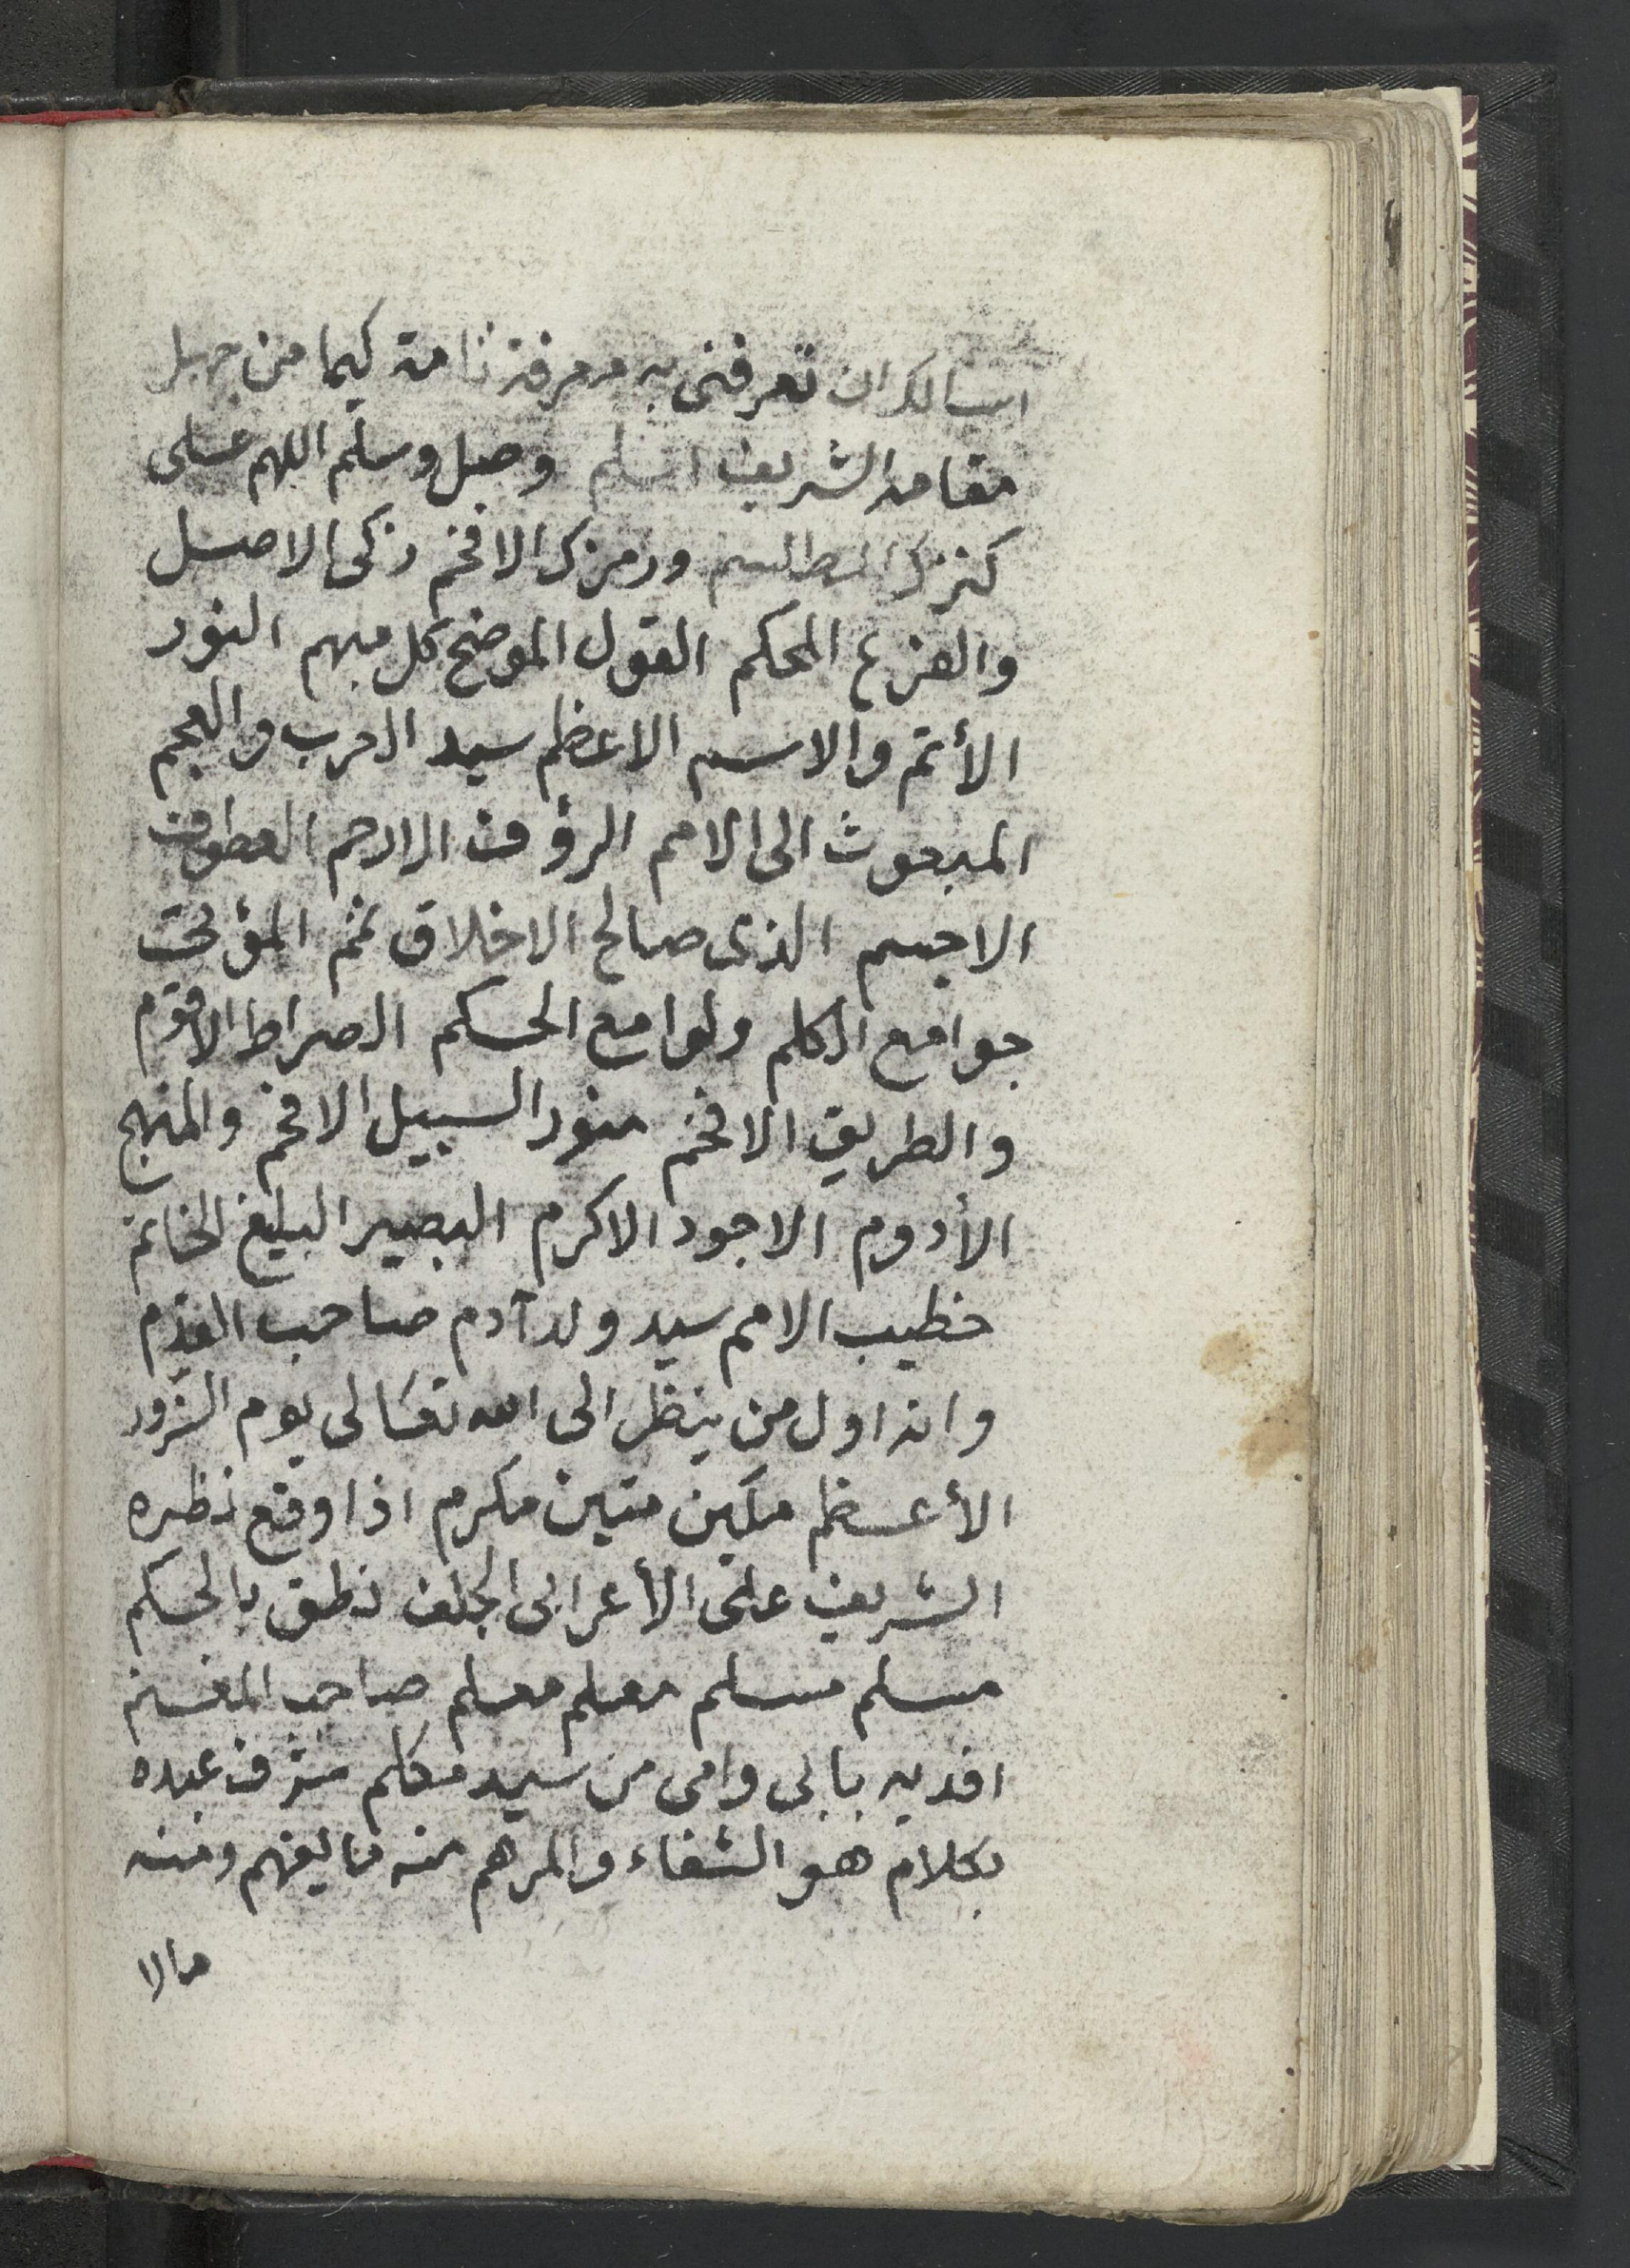 اسالك ان تعرفنى به معرفة تامة كيما من جهل
مقامه الشريف اسلم وصل وسلم اللهم على
كنزك المطلسم ورمزك الافخم زكى الاصل
والفرع المحكم القول الموضح كل مبهم النور
الأتم والاسم الاعظم سيد العرب والعجم
المبعوث الى الامم الرؤف الارحم العطوف
الاجسم الذى صالح الاخلاق تمم المؤتى
جوامع الكلم ولوامع الحكم الصراط الاقوم
والطريق الافخم منور السبيل الافخم والمنهج
الأدوم الاجود الاكرم البصير البليغ الخاتم
خطيب الامم سيد ولد آدم صاحب القدم
وانه اول من ينظر الى الله تعالى يوم الزور
الأعظم مكين متين مكرم اذا وقع نظره
الشريف على الأعرابى الجلف نطق بالحكم
مسلم مسلم معلم معلم صاحب المغنم
افديه بابى وامى من سيد مكلم شرف عبده
بكلام هو الشفاء والمرهم منه ما يفهم ومنه
مالا